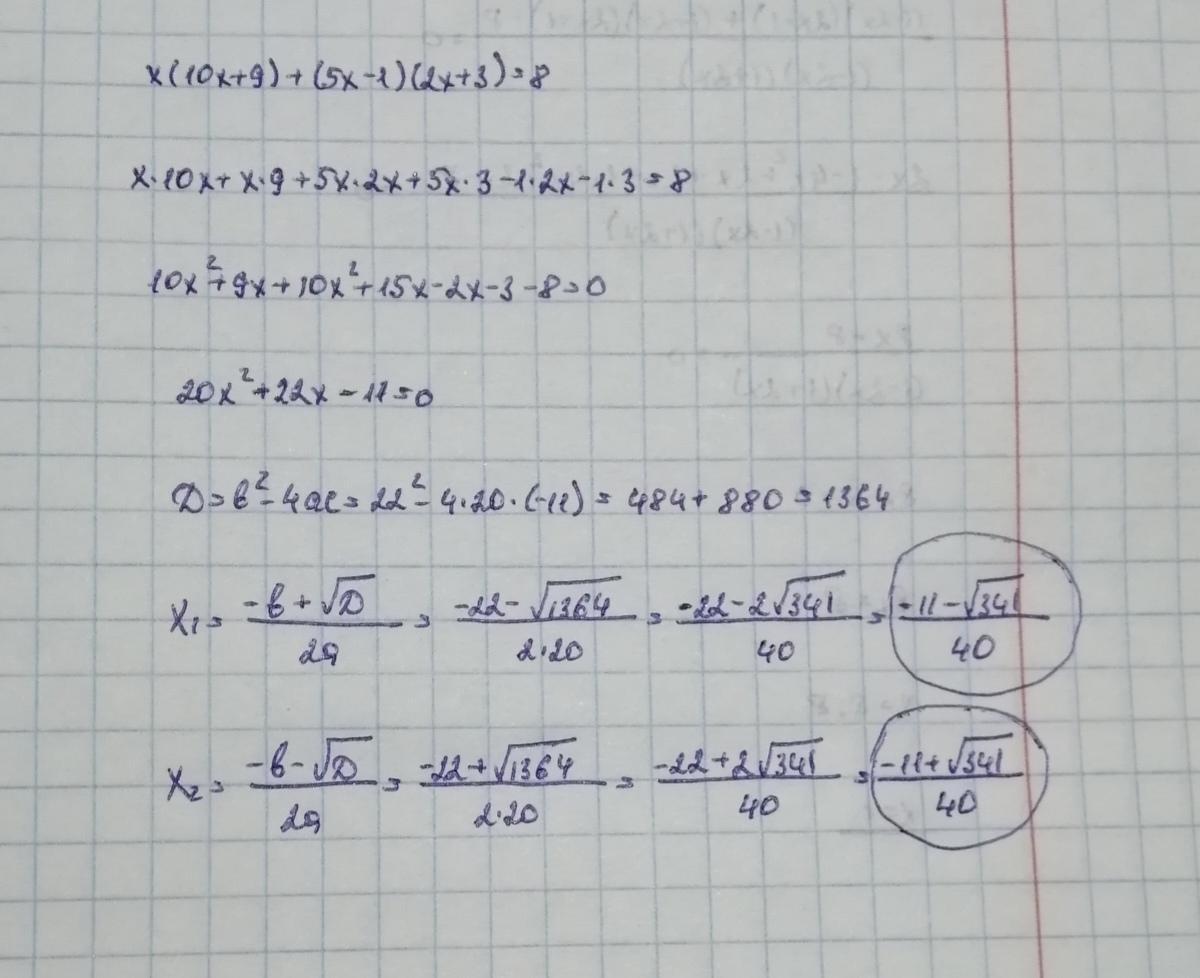 x(10x+9)+(5x-1)(2x+3)=8
x·10x+x·9+5x·2x+5x·3-1·2x-1·3=8
10x²+9x+10x²+15x-2x-3-8=0
20x²+22x-11=0
D=b²-4ac=22²-4·20·(-11)=484+880=1364
x₁=(-b+√D)/2a=(-22-√1364)/(2·20)=(-22-2√341)/40=(-11-√341)/40
x₂=(-b-√D)/2a=(-22+√1364)/(2·20)=(-22+2√341)/40=(-11+√341)/40